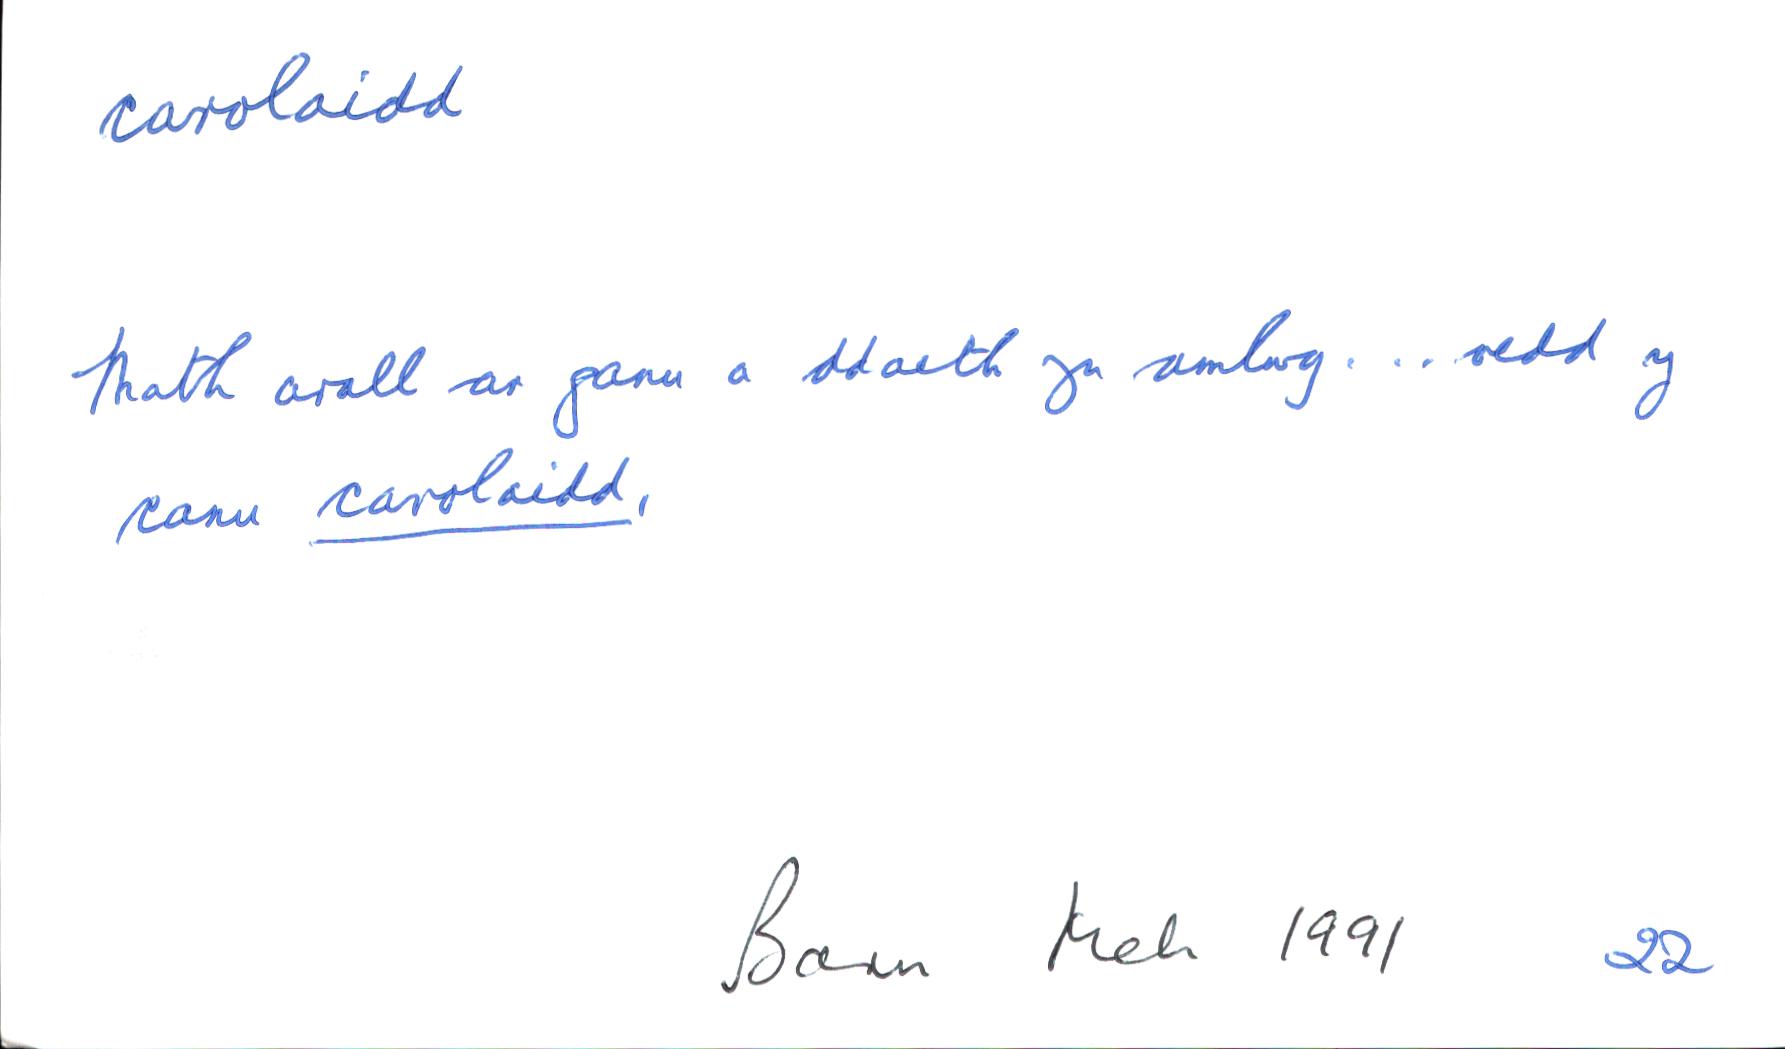 carolaidd
Math arall ar ganu a ddaeth yn amlwg . . . oedd y
canu carolaidd.
Barn Meh 1991 22